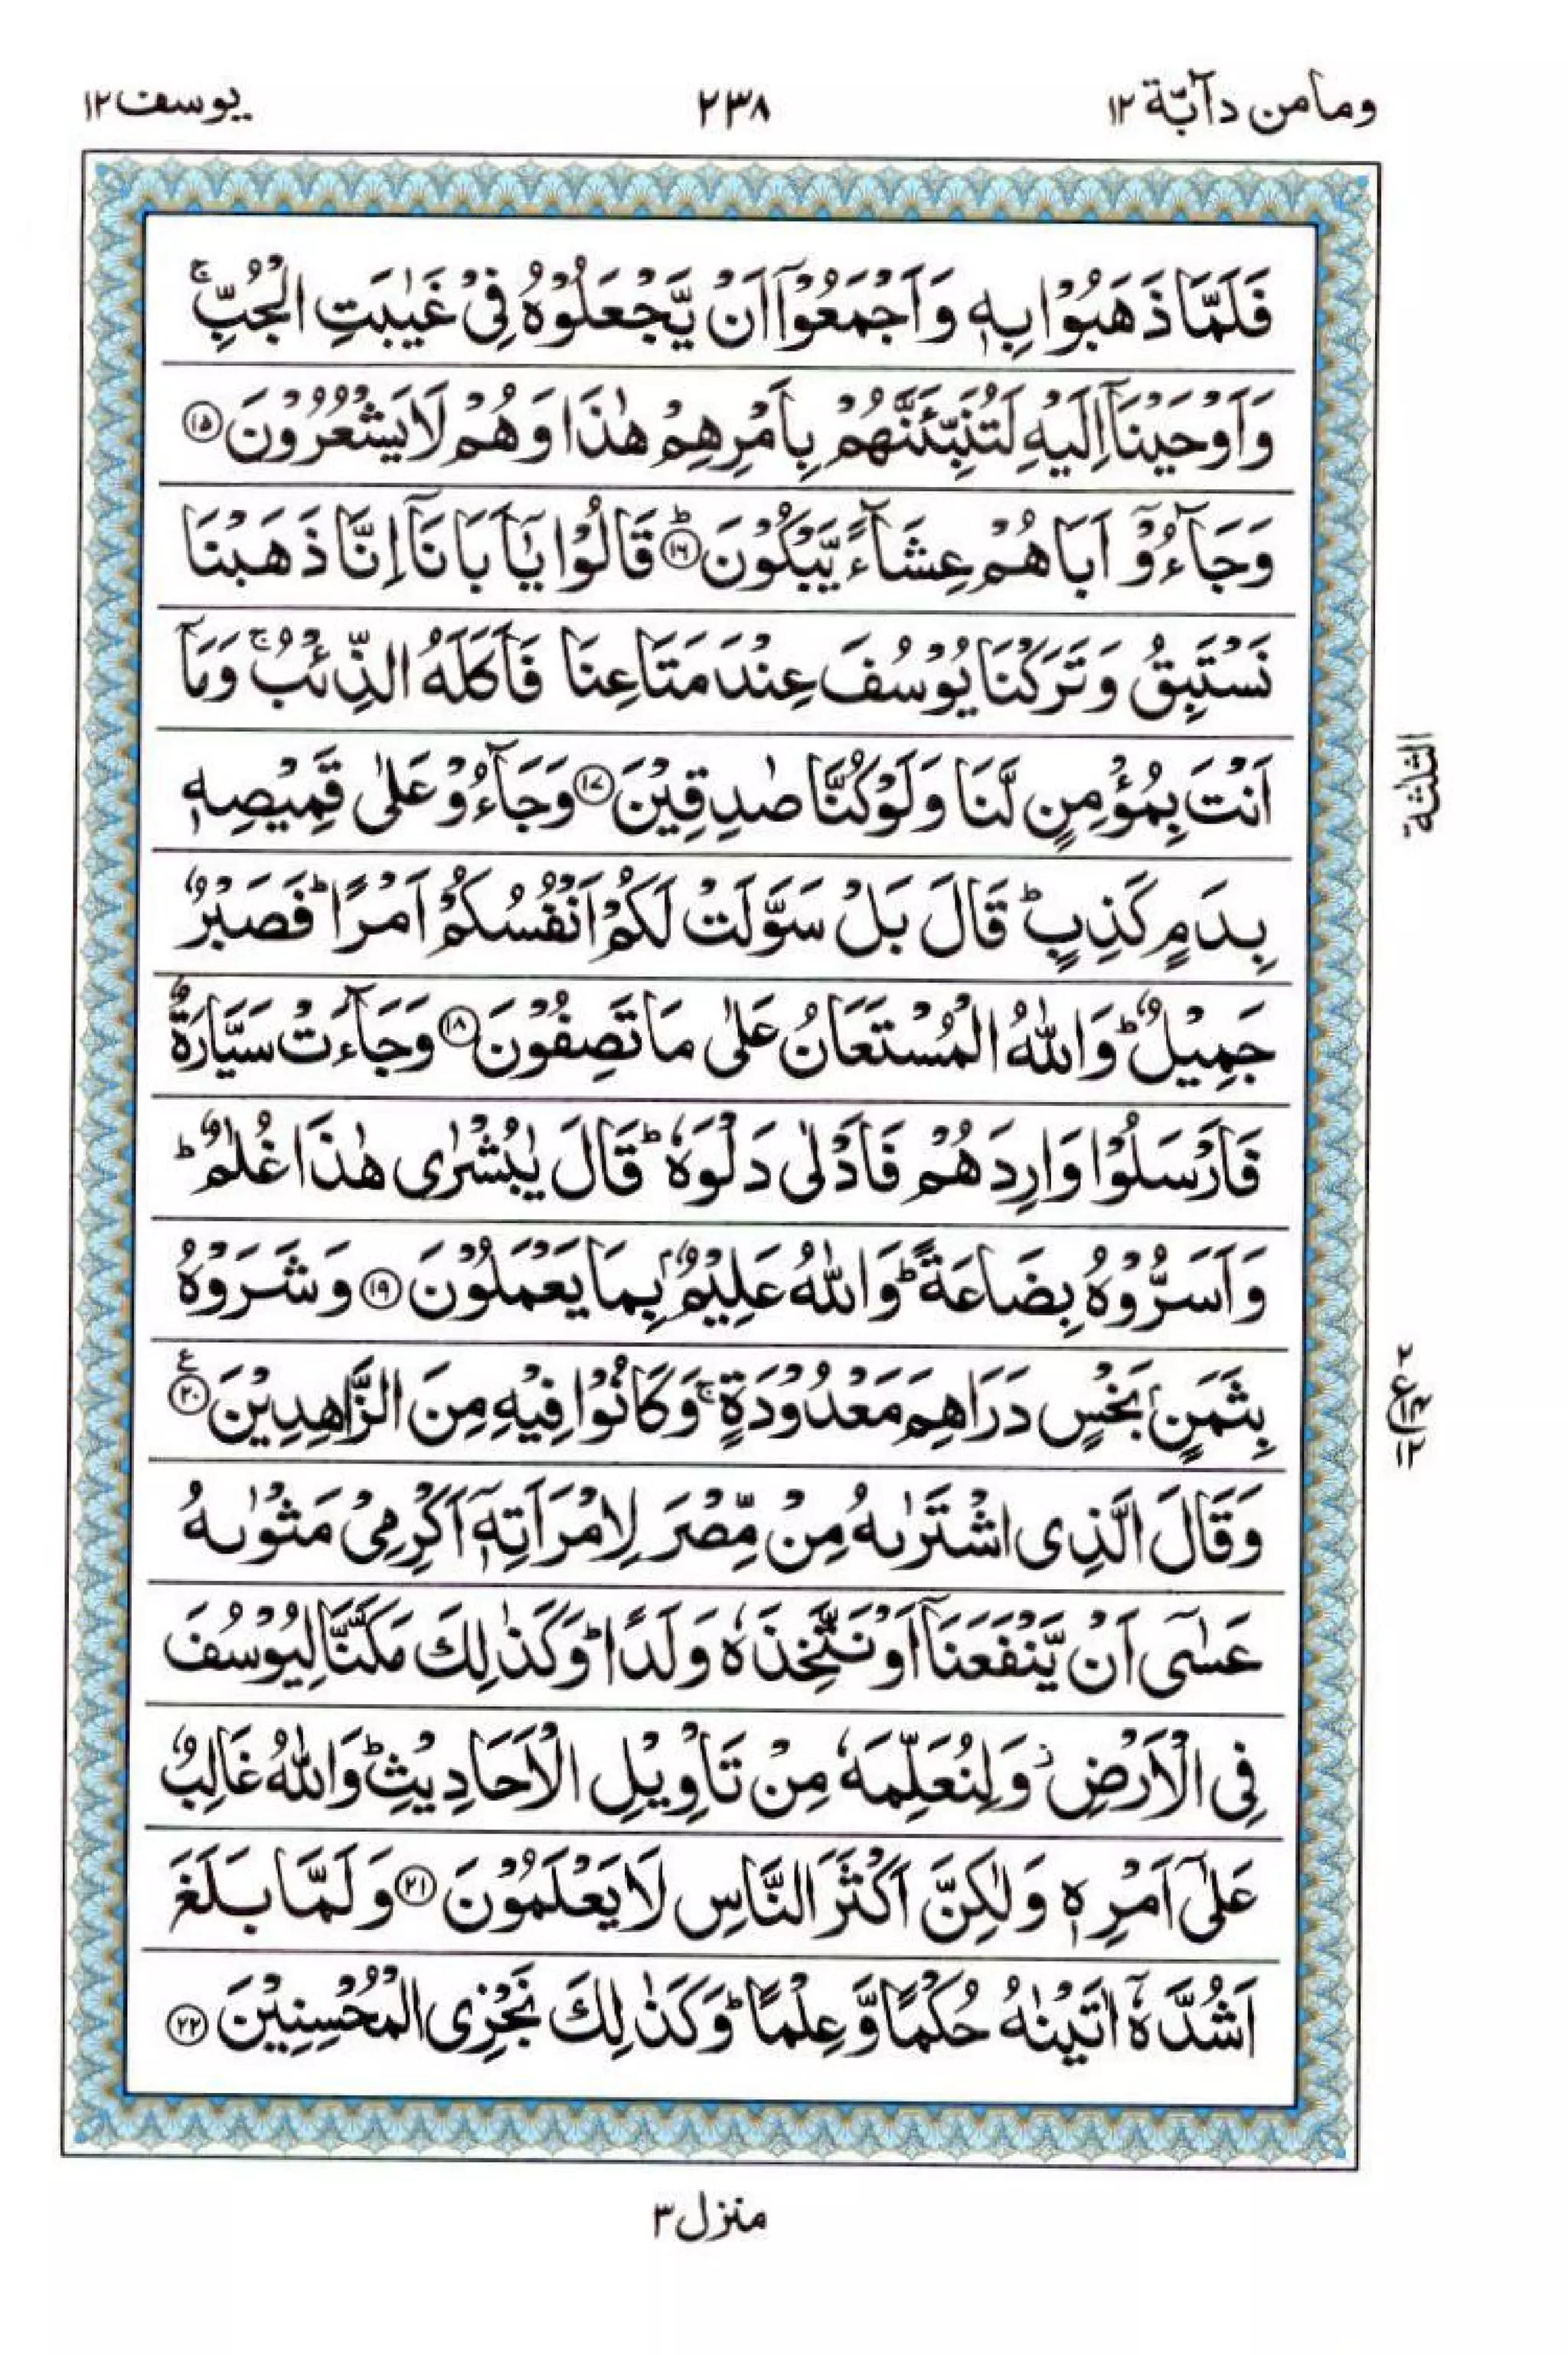 ومامن دآبّة ١٢
٢٣٨
یوسف ١٢
فَلَمَّا ذَهَبُوْا بِهٖ وَاَجْمَعُوْۤا اَنْ یَّجْعَلُوْهُ فِیْ غَیٰبَتِ الْجُبِّ ۚ
وَاَوْحَیْنَاۤ اِلَیْهِ لَتُنَبِّئَنَّهُمْ بِاَمْرِهِمْ هٰذَا وَهُمْ لَا یَشْعُرُوْنَ ﴿١٥﴾
وَجَآءُوْۤ اَبَاهُمْ عِشَآءً یَّبْكُوْنَ ؕ﴿١٦﴾ قَالُوْا یٰۤاَبَانَاۤ اِنَّا ذَهَبْنَا
نَسْتَبِقُ وَتَرَكْنَا یُوْسُفَ عِنْدَ مَتَاعِنَا فَاَكَلَهُ الذِّئْبُ ۚ وَمَاۤ
اَنْتَ بِمُؤْمِنٍ لَّنَا وَلَوْ كُنَّا صٰدِقِیْنَ ﴿١٧﴾ وَجَآءُوْ عَلٰی قَمِیْصِهٖ
بِدَمٍ كَذِبٍ ؕ قَالَ بَلْ سَوَّلَتْ لَكُمْ اَنْفُسُكُمْ اَمْرًا ؕ فَصَبْرٌ
جَمِیْلٌ ؕ وَاللّٰهُ الْمُسْتَعَانُ عَلٰی مَا تَصِفُوْنَ ﴿١٨﴾ وَجَآءَتْ سَیَّارَةٌ
فَاَرْسَلُوْا وَارِدَهُمْ فَاَدْلٰی دَلْوَهٗ ؕ قَالَ یٰبُشْرٰی هٰذَا غُلٰمٌ ؕ
وَاَسَرُّوْهُ بِضَاعَةً ؕ وَاللّٰهُ عَلِیْمٌۢ بِمَا یَعْمَلُوْنَ ﴿١٩﴾ وَشَرَوْهُ
بِثَمَنٍۭ بَخْسٍ دَرَاهِمَ مَعْدُوْدَةٍ ۚ وَكَانُوْا فِیْهِ مِنَ الزَّاهِدِیْنَ ﴿٢٠﴾ ع
وَقَالَ الَّذِی اشْتَرٰىهُ مِنْ مِّصْرَ لِامْرَاَتِهٖۤ اَكْرِمِیْ مَثْوٰىهُ
عَسٰۤی اَنْ یَّنْفَعَنَاۤ اَوْ نَتَّخِذَهٗ وَلَدًا ؕ وَكَذٰلِكَ مَكَّنَّا لِیُوْسُفَ
فِی الْاَرْضِ ؗ وَلِنُعَلِّمَهٗ مِنْ تَاْوِیْلِ الْاَحَادِیْثِ ؕ وَاللّٰهُ غَالِبٌ
عَلٰۤی اَمْرِهٖ وَلٰكِنَّ اَكْثَرَ النَّاسِ لَا یَعْلَمُوْنَ ﴿٢١﴾ وَلَمَّا بَلَغَ
اَشُدَّهٗۤ اٰتَیْنٰهُ حُكْمًا وَّعِلْمًا ؕ وَكَذٰلِكَ نَجْزِی الْمُحْسِنِیْنَ ﴿٢٢﴾
الثلثة
٢
ع
١٢
منزل ٣